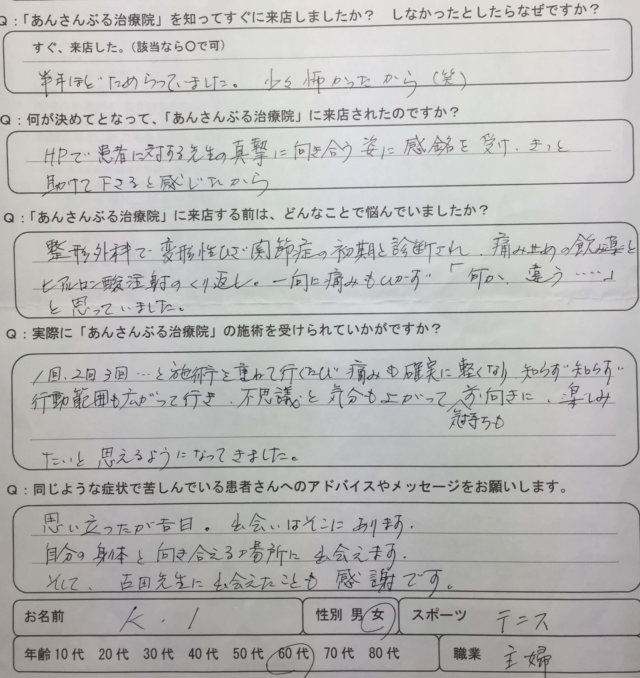 Q：「あんさんぶる治療院」を知ってすぐに来店しましたか？　しなかったとしたらなぜですか？
すぐ、来店した。（該当なら〇で可）
半年ほどためらっていました。 少々怖かったから（笑）
Q：何が決めてとなって、「あんさんぶる治療院」に来店されたのですか？
HPで患者に対する先生の真摯に向き合う姿に感銘を受け、きっと
助けて下さると感じたから
Q：「あんさんぶる治療院」に来店する前は、どんなことで悩んでいましたか？
整形外科で変形性ひざ関節症の初期と診断され、痛み止めの飲み薬と
ヒアルロン酸注射のくり返し。一向に痛みもひかず「何か、違う……」
と思っていました。
Q：実際に「あんさんぶる治療院」の施術を受けられていかがですか？
1回、2回3回…と施術を重ねて行くたび痛みも確実に軽くなり、知らず知らず
行動範囲も広がって行き、不思議と気分も上がって前向きに、楽しみ
気持ちも
たいと思えるようになってきました。
Q：同じような症状で苦しんでいる患者さんへのアドバイスやメッセージをお願いします。
思い立ったが吉日。出会いはそこにあります。
自分の身体と向き合える場所に出会えます。
そして、吉田先生に出会えたことも感謝です。
お名前 K.I 性別 男 女 スポーツ テニス
年齢 10代 20代 30代 40代 50代 60代 70代 80代 職業 主婦